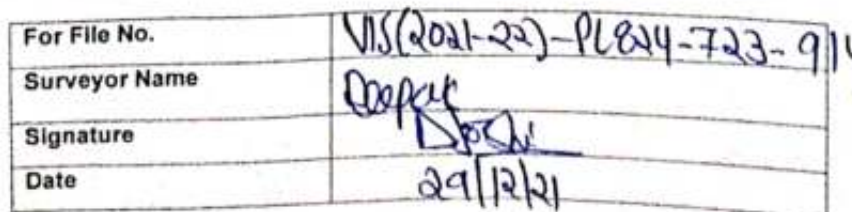 For File No. VIS(2021-22)-PL824-723-914
Surveyor Name Deepak
Signature
Date 29/12/21